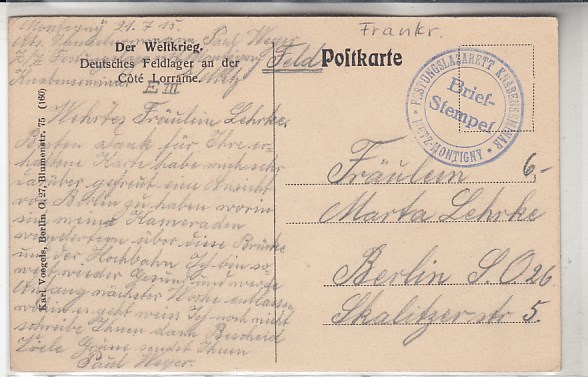 Montigny 21.7.15.
Paul Weyer
Knabenseminar
Metz
Der Weltkrieg.
Deutsches Feldlager an der
Côté Lorraine.
E III
Feld Postkarte
Frankr.
FESTUNGSLAZARETT KNABENSEMINAR
Brief-
Stempel
METZ-MONTIGNY
6-
Wehrtes Fräulein Lehrke.
Besten Dank für Ihre er-
haltene Karte habe mich sehr
darüber gefreut eine Ansicht
von Berlin zu haben worin
sich meine Kameraden
wunderten über diese Brücke
und der Hochbahn Ich bin so
weit wieder Gesund und werde
Anfang nächster Woche entlassen
wohin es geht weiss Ich noch nicht
schreibe Ihnen dann Bescheid
Viele Grüsse sendet Ihnen
Paul Weyer.
Fräulein
Marta Lehrke
Berlin S.O 26
Skalitzer-str 5.
Karl Voegels, Berlin O. 27, Blumenstr. 75 (160)